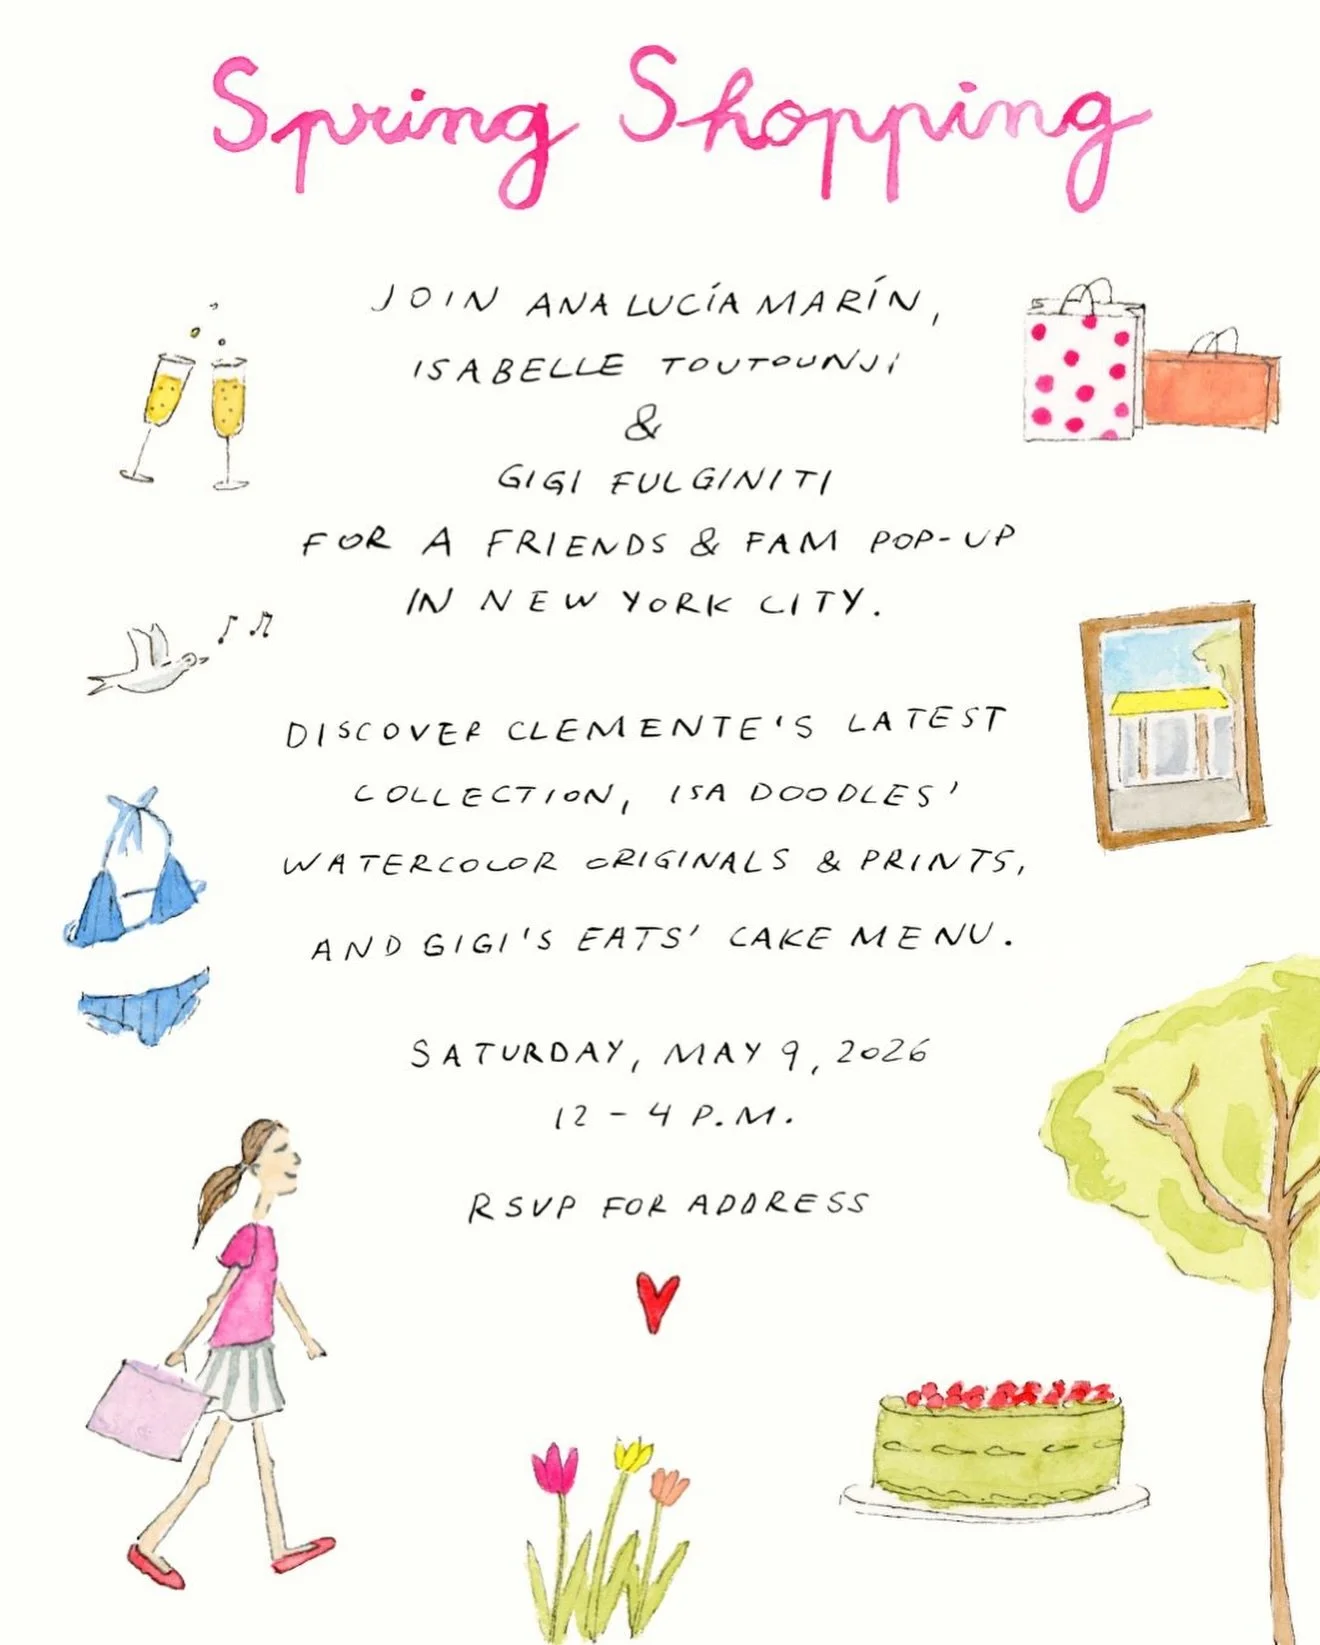 Spring Shopping
JOIN ANA LUCÍA MARÍN,
ISABELLE TOUTOUNJI
&
GIGI FULGINITI
FOR A FRIENDS & FAM POP-UP
IN NEW YORK CITY.
DISCOVER CLEMENTE'S LATEST
COLLECTION, ISA DOODLES'
WATERCOLOR ORIGINALS & PRINTS,
AND GIGI'S EATS' CAKE MENU.
SATURDAY, MAY 9, 2026
12 - 4 P.M.
RSVP FOR ADDRESS